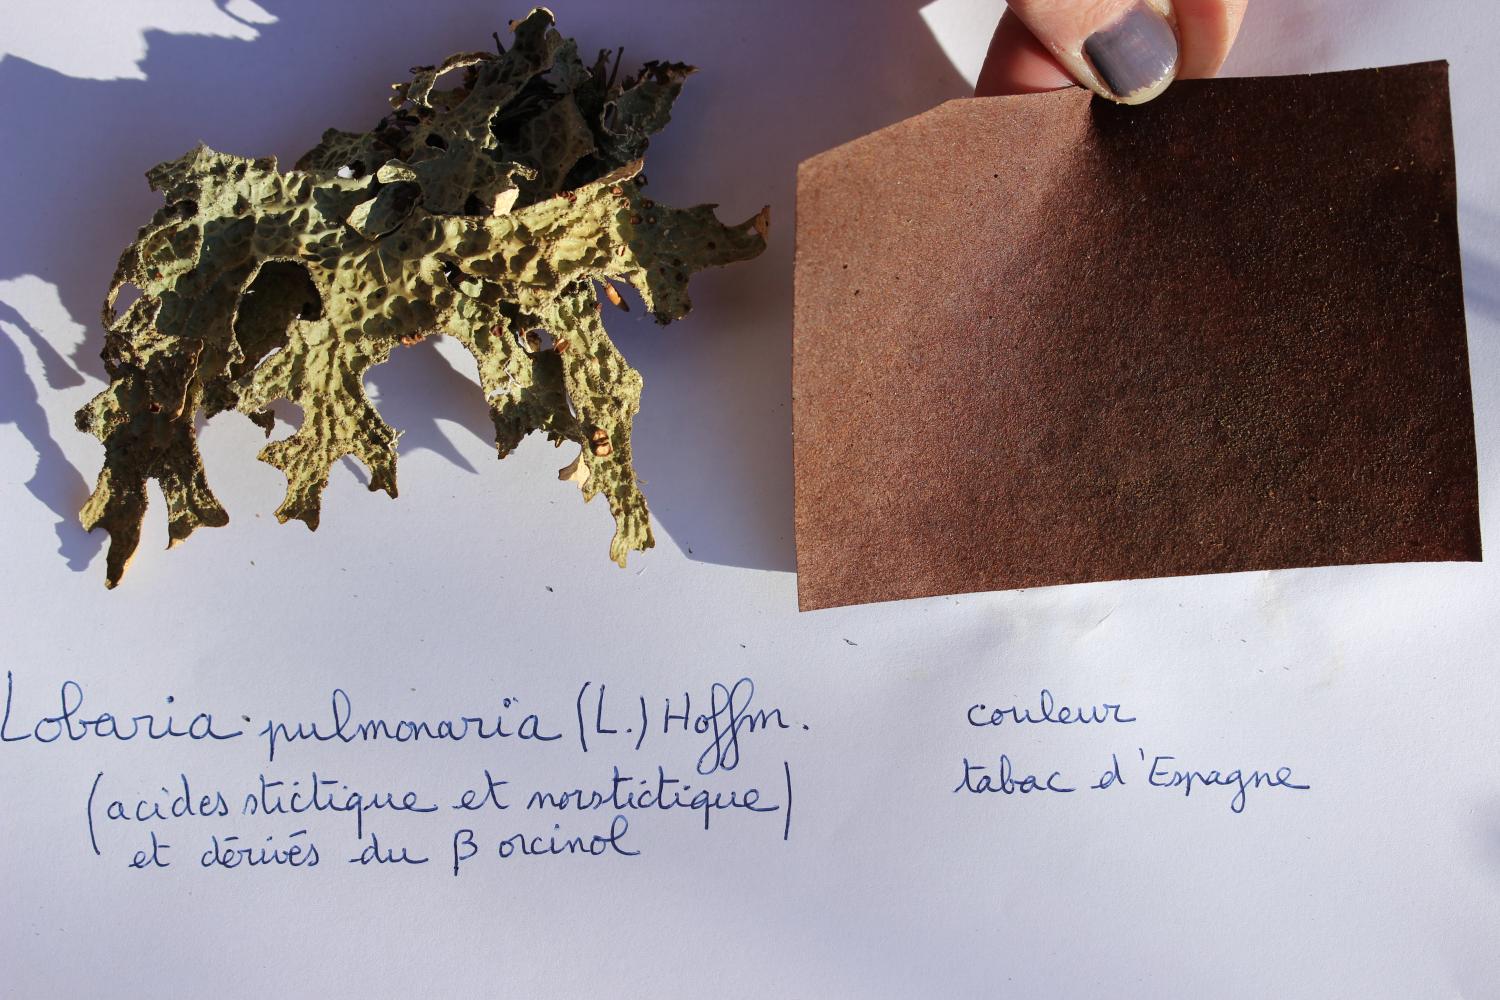 Lobaria pulmonarïa (L.) Hoffm.
(acides stictique et norstictique)
et dérivés du β orcinol
couleur
tabac d'Espagne